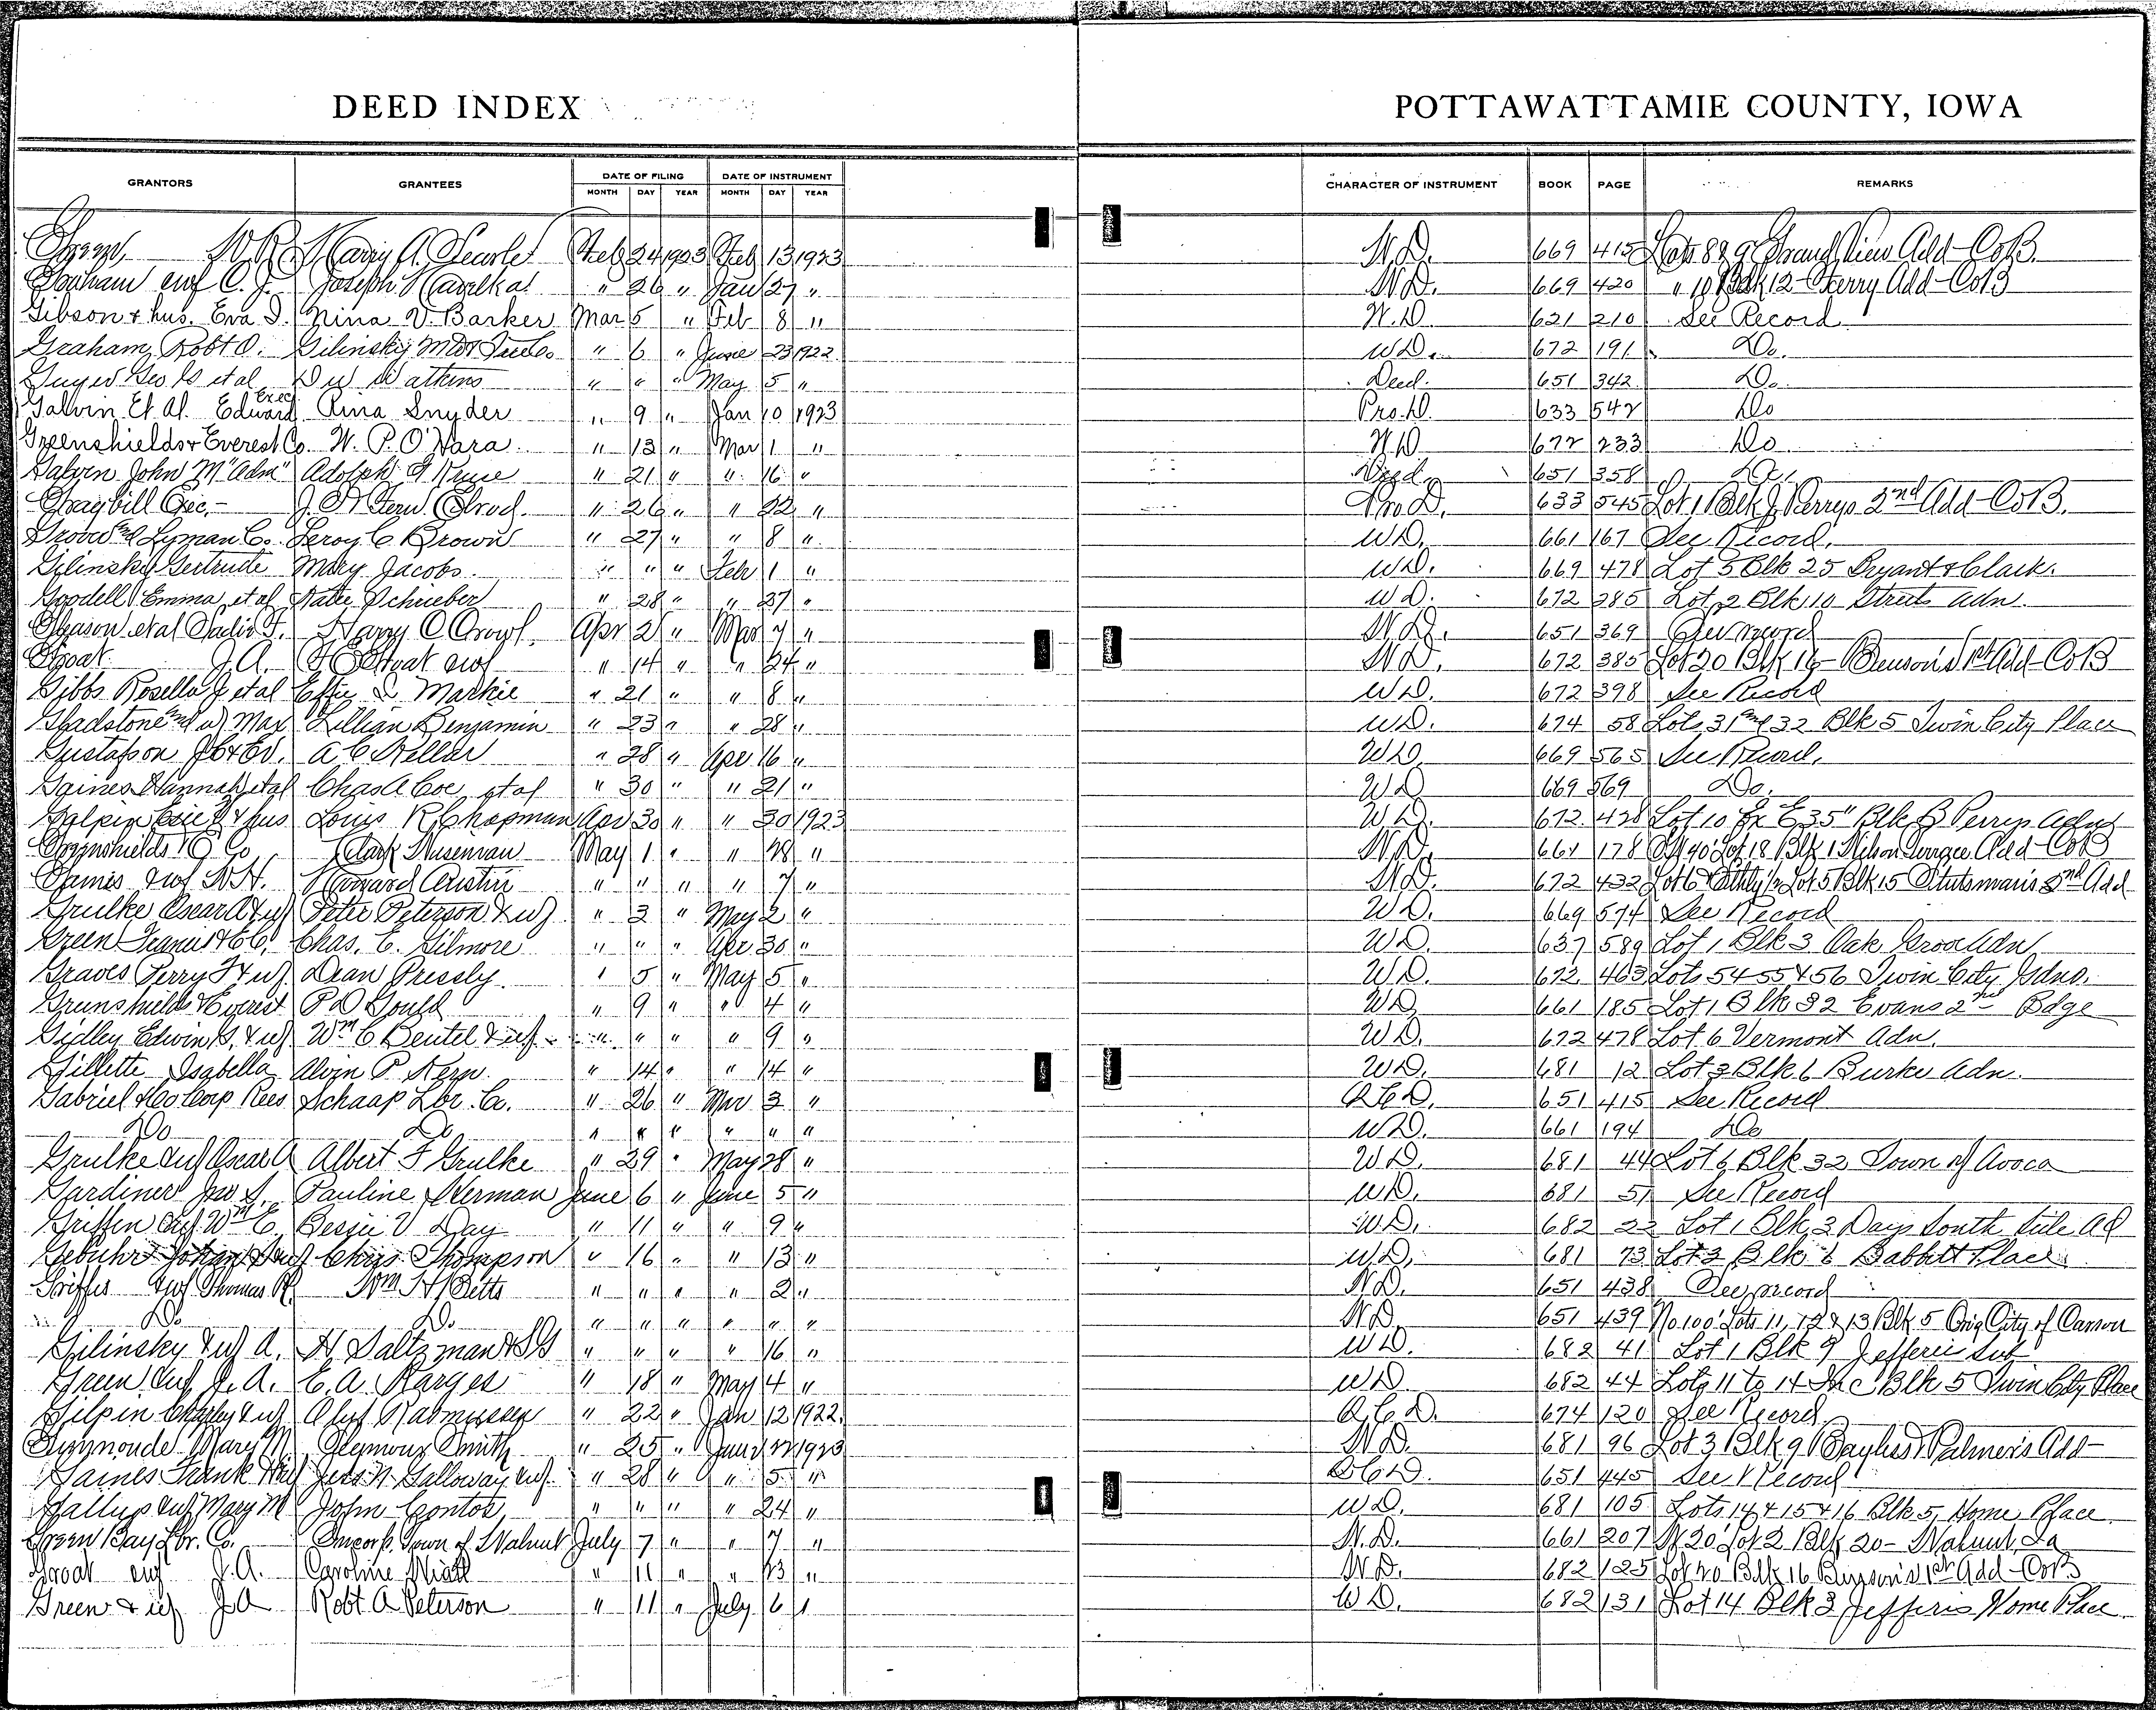 DEED INDEX POTTAWATTAMIE COUNTY, IOWA
GRANTORS GRANTEES DATE OF FILING DATE OF INSTRUMENT CHARACTER OF INSTRUMENT BOOK PAGE REMARKS
MONTH DAY YEAR MONTH DAY YEAR
Green, W.R. Harry A. Searle Feb 24 1923 Feb 13 1923 W.D. 669 415 Lots 8 & 9 Grand View Add-CoB.
Graham &wf C. J. Joseph Havlka " 26 " Jan 27 " W.D. 669 420 " 10 Blk 12- Ferry Add-CoB
Gibson & hus. Eva I. Nina V. Barker Mar 5 " Feb 8 " W.D. 621 210 See Record
Graham, Robt O. Gilinsky " 6 " June 23 1922 W.D. 672 191 Do.
Guyer Geo et al D W Watkins " " " May 5 " Deed. 651 342 Do.
Galvin Et Al. Edward Exec Rina Snyder " 9 " Jan 10 1923 Pro.D. 633 542 Do
Greenshields & Everest Co. W. P. O'Hara " 13 " Mar 1 " W.D 672 233 Do
Galvin John M "Adm" Adolph Kruse " 21 " " 16 " Deed 651 358 Do.
Graybill Exec.- J. Elrod. " 26 " " 22 " Pro D. 633 545 Lot 1 Blk J Perrys 2nd Add-CoB.
Grover and Lyman Co. Leroy C Brown " 27 " " 8 " W.D. 661 167 See Record.
Gilinsky Gertrude Mary Jacobs " " " Feb 1 " W.D. 669 478 Lot 5 Blk 25 Bryant & Clark.
Goodell Emma, et al Katie Schrieber " 28 " " 27 " W.D. 672 285 Lot 2 Blk 10 Streets Adn.
Gleason et al Sadie F. Harry C Crowl Apr 2 " Mar 7 " W.D. 651 369 See record
Groat J.A. Groat &wf " 14 " " 24 " W.D. 672 385 Lot 20 Blk 16- Benson's 1st Add-CoB
Gibbs Rosella J et al Effie D. Markie " 21 " " 8 " W.D. 672 398 See Record
Gladstone and wf Max Lillian Benjamin " 23 " " 28 " W.D. 674 58 Lots 31 and 32 Blk 5 Twin City Place
Gustafson A C Keller " 28 " Apr 16 " W.D. 669 565 See Record,
Gaines Hannah et al Chas A Coe, et al " 30 " " 21 " W.D 669 569 Do.
Galpin & hus Louis R Chapman Apr 30 " " 30 1923 W.D. 672 428 Lot 10 Ex E 35" Blk B Perrys Adn
Greenshields Co Clark Huseman May 1 " " 28 " W.D. 661 178 Lot 18 Blk 1 Wilson Terrace Add-CoB
Games &wf W.H. Howard Austin " " " " 7 " W.D. 672 432 Lot 6 & Sthly 1/2 Lot 5 Blk 15 Stutsman's 2nd Add
Grulke Oscar A & wf Peter Peterson & wf " 3 " May 2 " W.D. 669 574 See Record
Green Francis Chas. E. Gilmore " " " Apr 30 " W.D. 637 589 Lot 1 Blk 3 Oak Grove Adn
Graves Perry F & wf Dean Pressly " 5 " May 5 " W.D. 672 463 Lots 54-55 & 56 Twin City Gdns.
Grunshields & Everist P D Gould " 9 " " 4 " W.D 661 185 Lot 1 Blk 32 Evans 2nd Bdge
Gidley Edwin S. & wf Wm C Beutel & wf " " " " 9 " W.D. 672 478 Lot 6 Vermont Adn.
Gillette Isabella Alvin P. Kern " 14 " " 14 " W.D. 681 12 Lot 3 Blk 6 Burke Adn.
Gabriel Corp Rees Schaap Lbr. Co. " 26 " Mar 3 " Q.C.D. 651 415 See Record
Do Do " " " " " " W.D. 661 194 Do
Grulke &wf Oscar A Albert F Grulke " 29 " May 28 " W.D. 681 44 Lot 6 Blk 32 Town of Avoca
Gardiner Jno S. Pauline Herman June 6 " June 5 " W.D. 681 51 See Record
Griffen &wf Wm E. Bessie V Day " 11 " " 9 " W.D. 682 22 Lot 1 Blk 2 Days South Side Ad
Gebuhr Johan &wf Chris Thompson " 16 " " 13 " W.D. 681 73 Lot 2 Blk 6 Babbitt Place
Griffis &wf Thomas R. Wm H Betts " " " " 2 " W.D. 651 438 See record
Do Do " " " " " " W.D 651 439 No 100' Lots 11, 12 & 13 Blk 5 Orig City of Carson
Gilinsky & wf A. H Saltzman " " " " 16 " W.D. 682 41 Lot 1 Blk 9 Jefferis Sub
Green &wf J. A. E. A. Karges " 18 " May 4 " W.D 682 44 Lots 11 to 14 Inc Blk 5 Twin City Place
Gilpin Charley & wf Oluf Rasmussen " 22 " Jan 12 1922 Q.C.D. 674 120 See Record
Mary M. Seymour Smith " 25 " June 1923 W.D. 681 96 Lot 3 Blk 9 Bayliss & Palmer's Add-
Gaines Frank &wf Jess N Galloway &wf " 28 " " 5 " Q.C.D. 651 445 See Record
Gallup &wf Mary M John Contos " " " " 24 " W.D. 681 105 Lots 14 & 15 & 16 Blk 5, Home Place
Green Bay Lbr. Co. Incorp. Town of Walnut July 7 " " 7 " W.D. 661 207 W 20' Lot 2 Blk 20- Walnut, Ia
Groat &wf J.A. Caroline " 11 " " 23 " W.D. 682 125 Lot 20 Blk 16 Benson's 1st Add-CoB
Green & wf J A Robt A Peterson " 11 " July 6 " W.D. 682 131 Lot 14 Blk 3 Jefferis Home Place